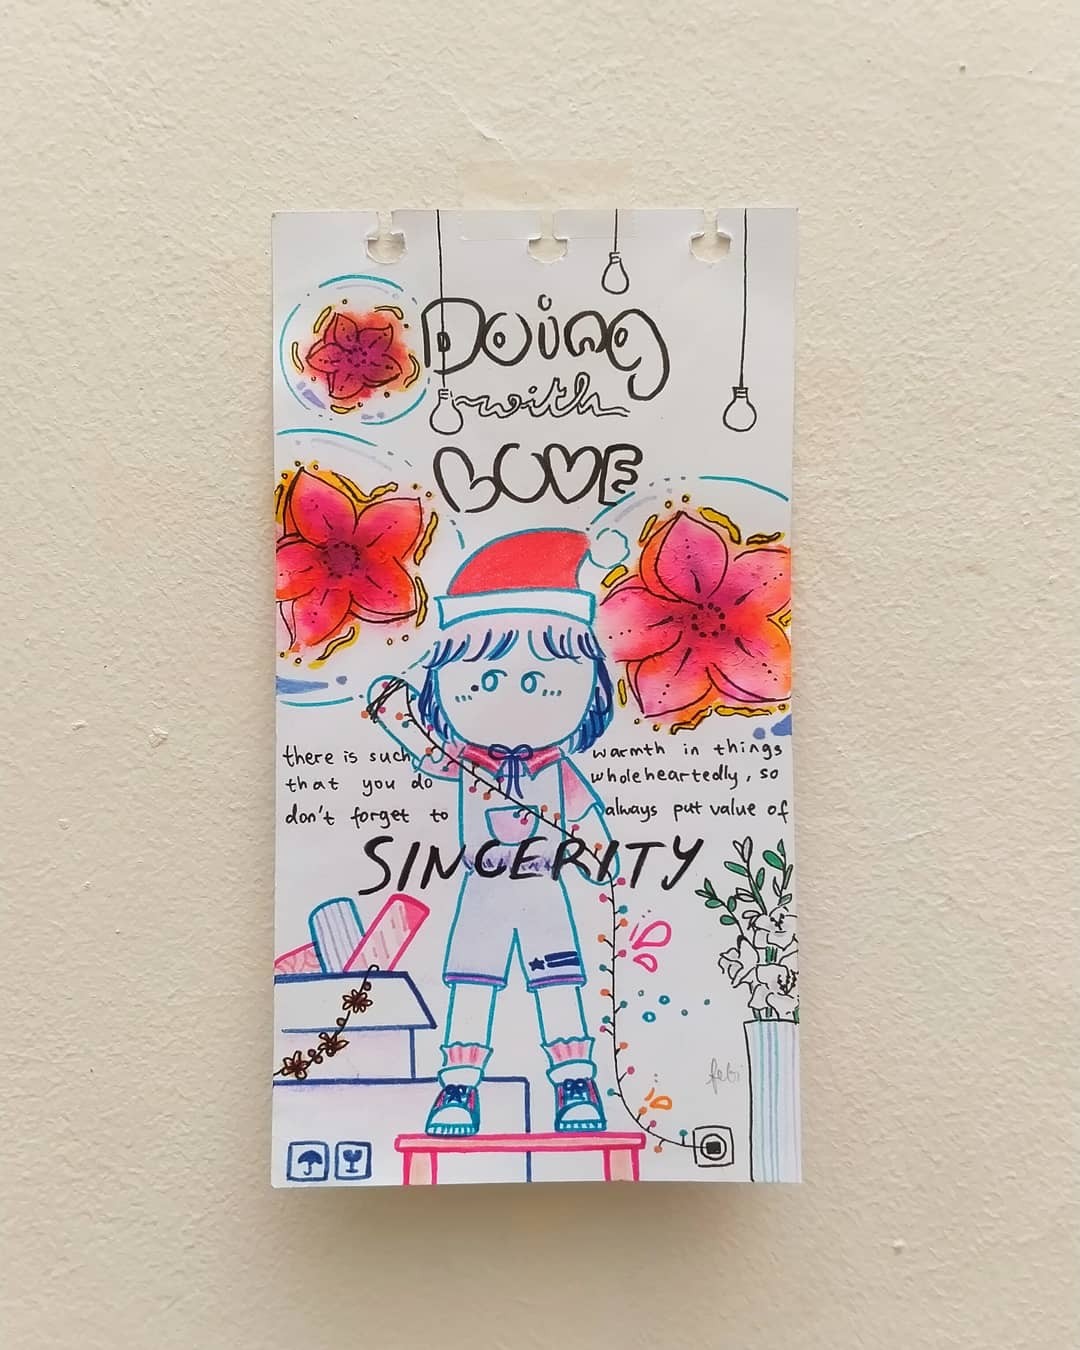 Doing
with
LOVE
there is such warmth in things
that you do wholeheartedly, so
don't forget to always put value of
SINCERITY
febi